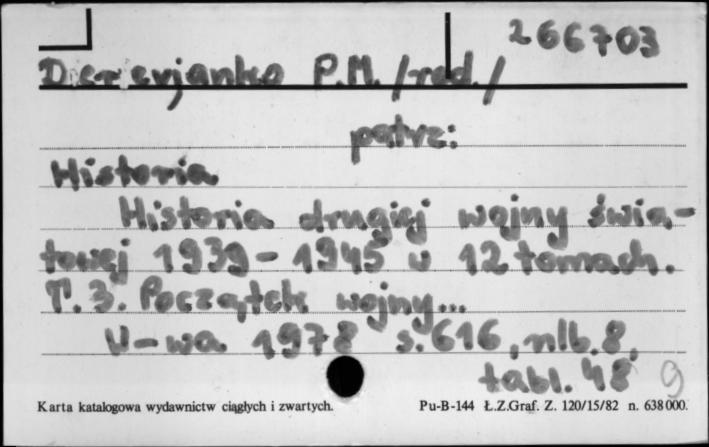 266703
Derevjanko P.M. /red./
patrz:
Historia
Historia drugiej wojny świa-
towej 1939-1945 w 12 tomach.
T. 3. Początek wojny...
W-wa 1978 s. 616, nlb. 8,
tabl. 48 9
Karta katalogowa wydawnictw ciągłych i zwartych. Pu-B-144 Ł.Z.Graf. Z. 120/15/82 n. 638000.